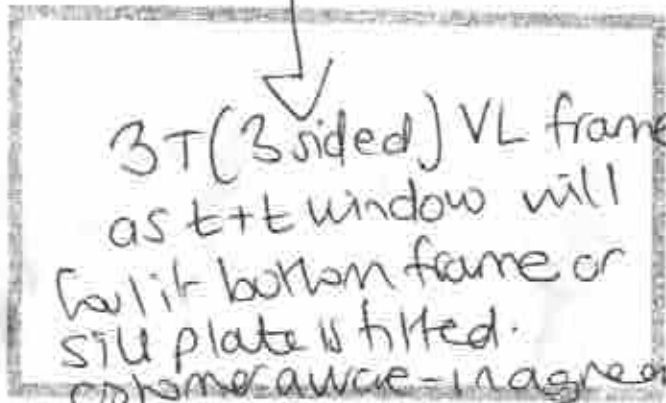 3T (3 sided) VL frame
as t+t window will
foul if bottom frame or
sill plate is tilted.
customer aware - in agree